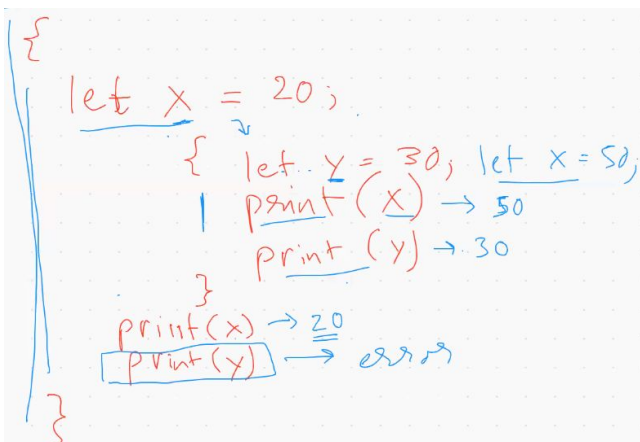 {
let x = 20;
{ let y = 30; let x = 50;
print (x) → 50
print (y) → 30
}
print(x) → 20
print(y) → error
}